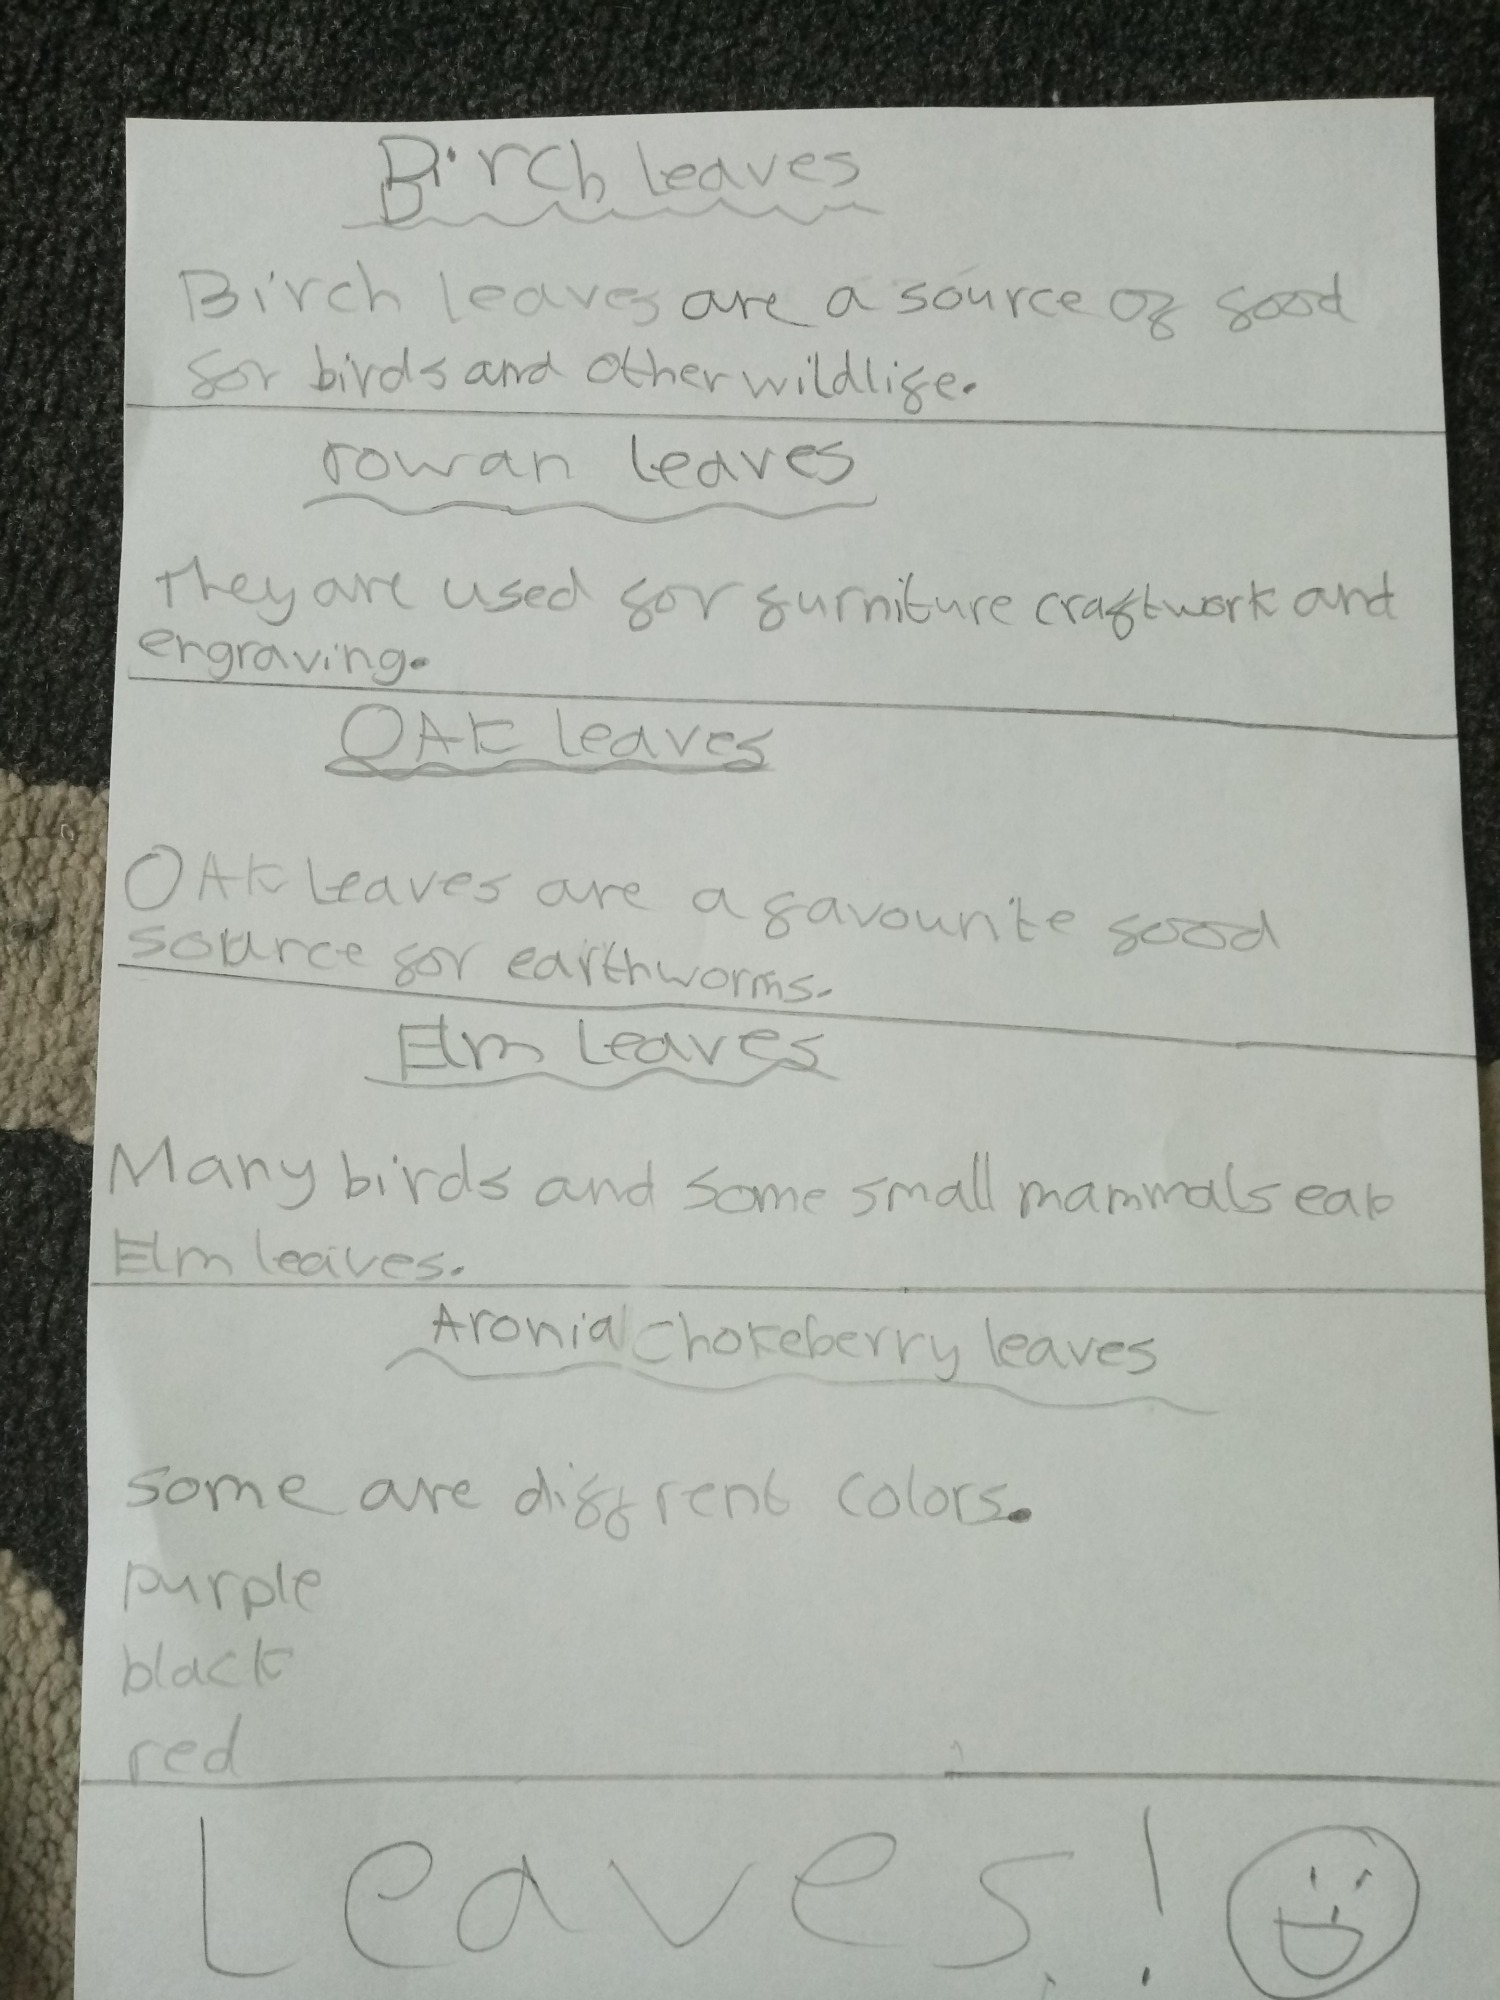 Birch leaves
Birch leaves are a source of food
for birds and other wildlife.
rowan leaves
They are used for furniture craftwork and
engraving.
OAK leaves
OAK leaves are a favourite food
source for earthworms.
Elm leaves
Many birds and some small mammals eat
Elm leaves.
Aronia Chokeberry leaves
some are diffrent colors.
purple
black
red
Leaves!